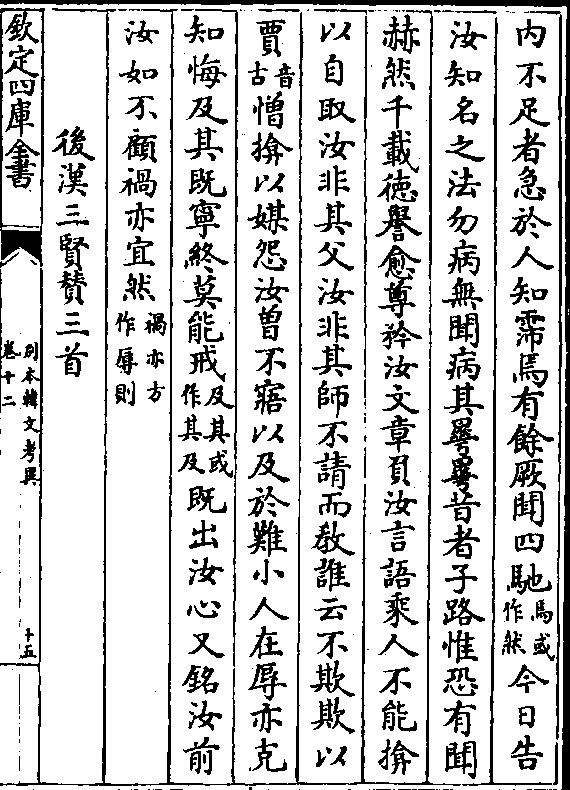 內不足者急於人知霈焉有餘厥聞四馳焉或作然今日告
汝知名之法勿病無聞病其曅曅昔者子路惟恐有聞
赫然千載德譽愈尊矜汝文章負汝言語乘人不能揜
以自取汝非其父汝非其師不請而敎誰云不欺欺以
賈音古憎揜以媒怨汝曾不寤以及於難小人在辱亦克
知悔及其既寧終莫能戒及其或作其及既出汝心又銘汝前
汝如不顧禍亦宜然禍亦方作辱則
後漢三賢贊三首
欽定四庫全書
別本韓文考異
卷十二
十五